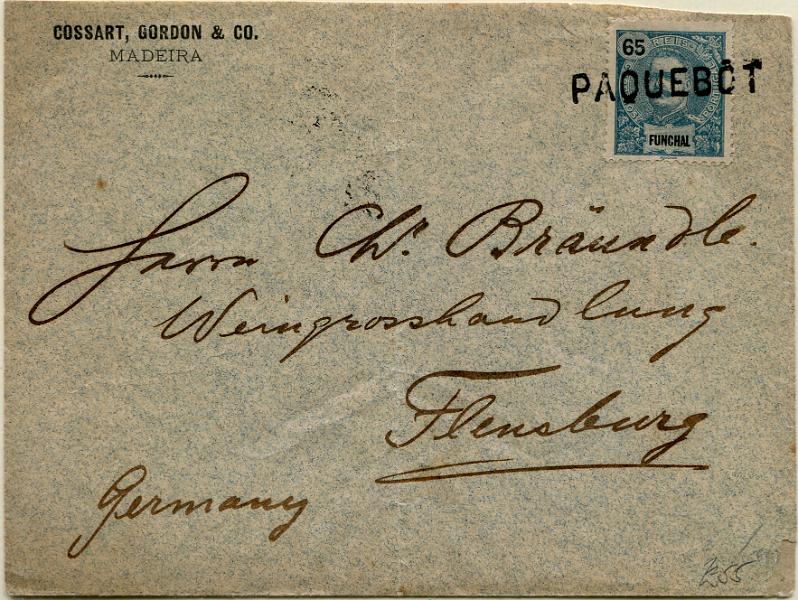 COSSART, GORDON & CO.
MADEIRA
65
REIS
PORTUGAL
FUNCHAL
PAQUEBOT
Herrn Chr. Bräundle.
Weingrosshandlung
Flensburg
Germany
£55